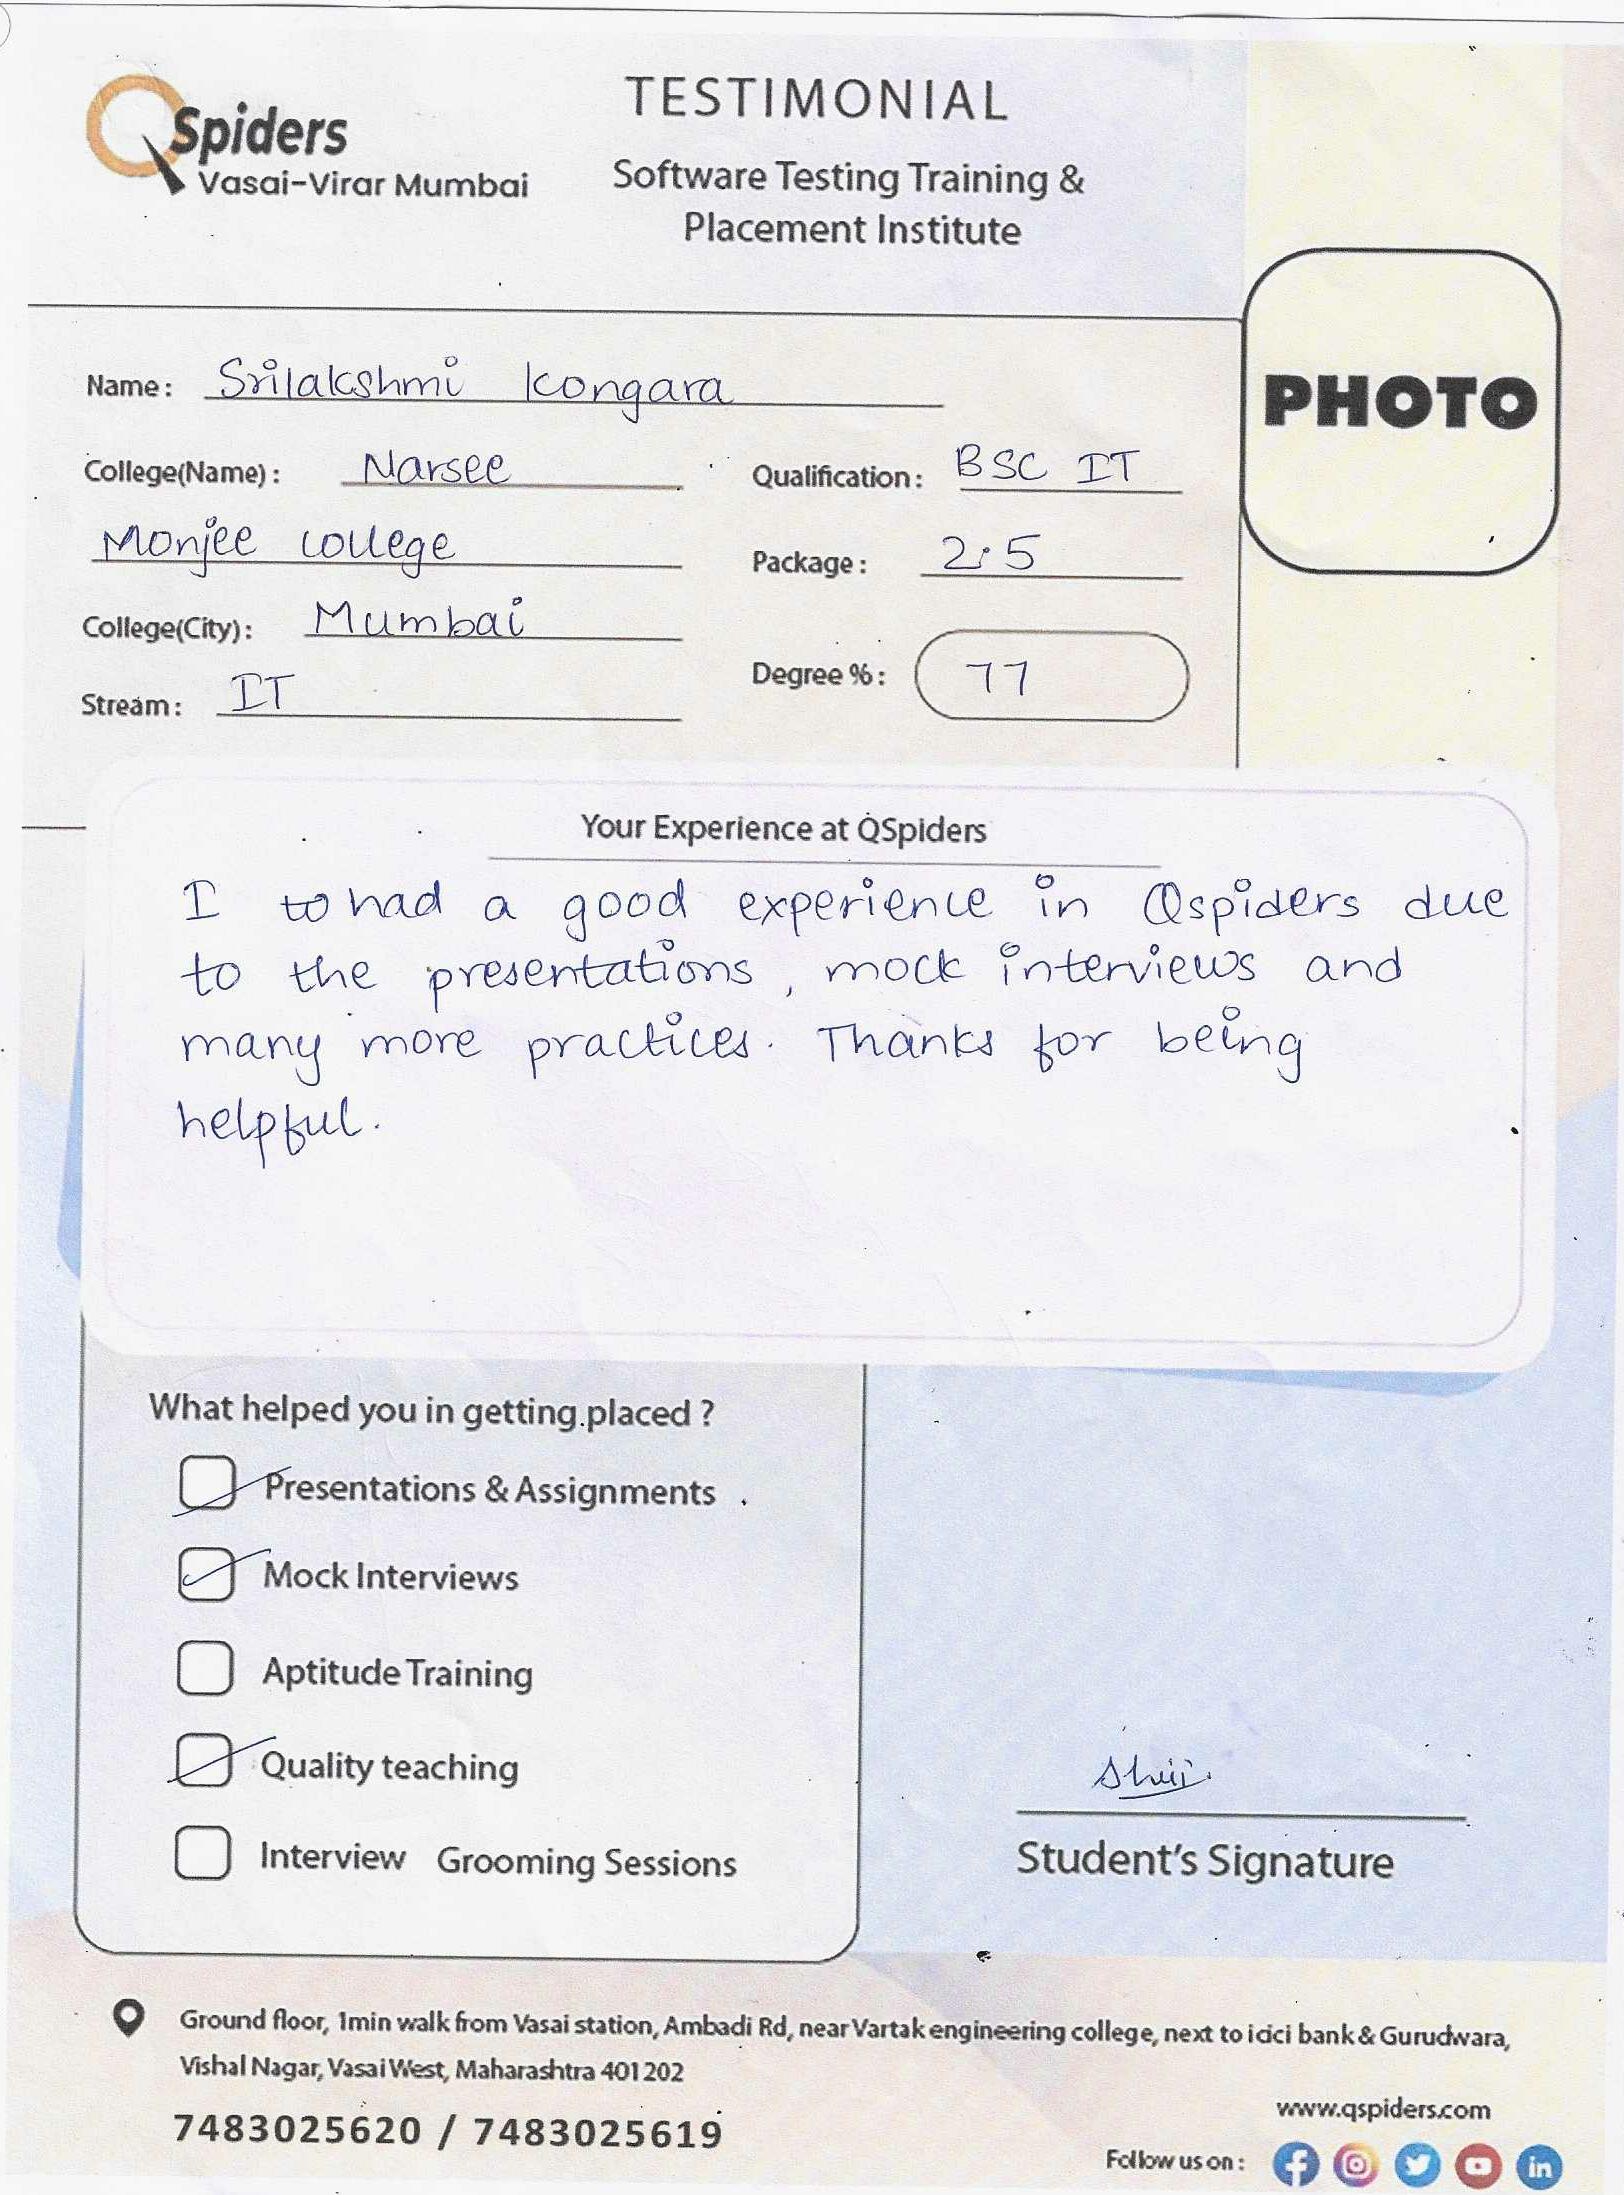 QSpiders
Vasai-Virar Mumbai
TESTIMONIAL
Software Testing Training &
Placement Institute
PHOTO
Name : Srilakshmi Kongara
College(Name) : Narsee
Monjee College
College(City) : Mumbai
Stream : IT
Qualification : BSC IT
Package : 2.5
Degree % : 77
Your Experience at QSpiders
I to had a good experience in Qspiders due
to the presentations, mock interviews and
many more practices. Thanks for being
helpful.
What helped you in getting placed ?
Presentations & Assignments
Mock Interviews
Aptitude Training
Quality teaching
Interview Grooming Sessions
Student's Signature
Ground floor, 1min walk from Vasai station, Ambadi Rd, near Vartak engineering college, next to icici bank & Gurudwara,
Vishal Nagar, Vasai West, Maharashtra 401202
7483025620 / 7483025619
www.qspiders.com
Follow us on :